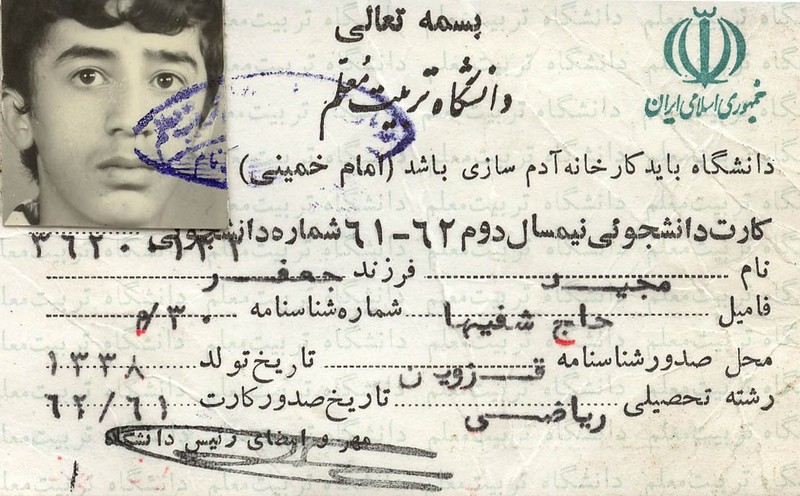 بسمه تعالی
دانشگاه تربیت معلم
جمهوری اسلامی ایران
دانشگاه باید کارخانه آدم سازی باشد (امام خمینی)
کارت دانشجوئی نیمسال دوم ۶۲-۶۱ شماره دانشجوئی
نام مجید فرزند جعفر
فامیل حاج شفیها شماره شناسنامه ۳۰/م
محل صدور شناسنامه قزوین تاریخ تولد ۱۳۳۸
رشته تحصیلی ریاضی تاریخ صدور کارت ۶۲/۶۱
مهر و امضای رئیس دانشگاه